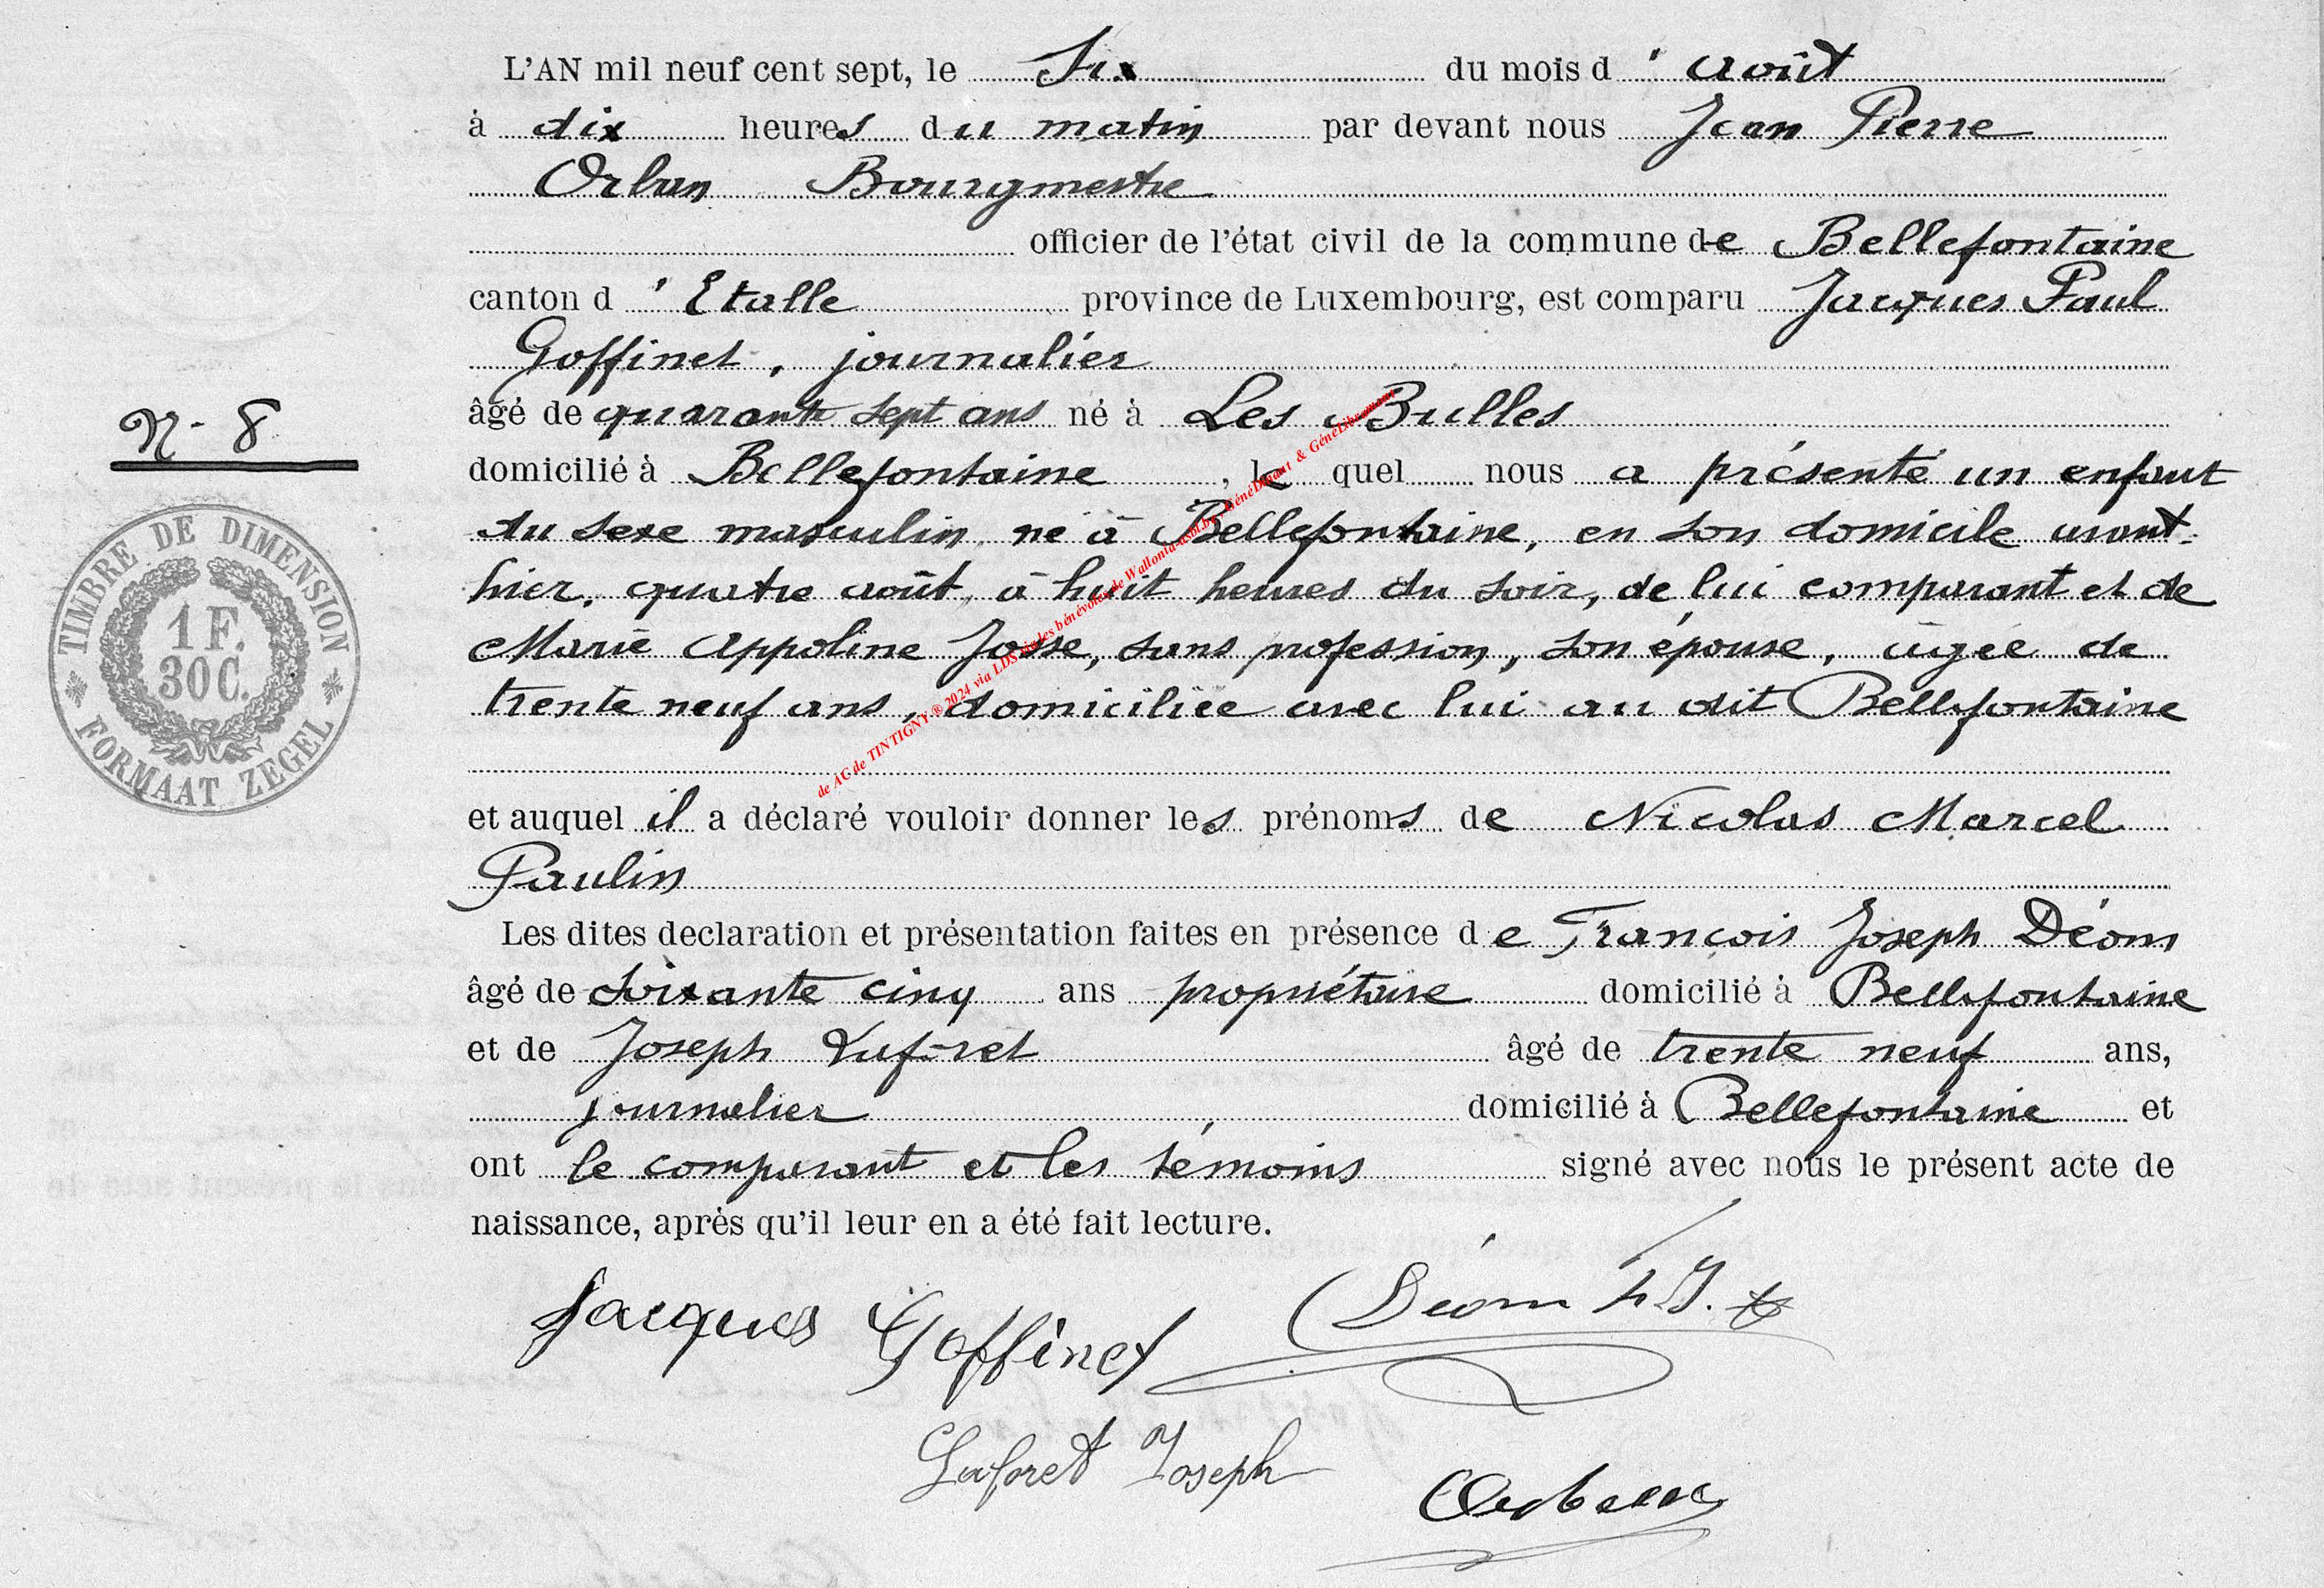 L'AN mil neuf cent sept, le Six du mois d'août
à dix heures du matin par devant nous Jean Pierre
Orban Bourgmestre
officier de l'état civil de la commune de Bellefontaine
canton d'Etalle province de Luxembourg, est comparu Jacques Paul
Goffinet, journalier
âgé de quarante sept ans né à Les Bulles
N- 8
domicilié à Bellefontaine, le quel nous a présenté un enfant
du sexe masculin, né à Bellefontaine, en son domicile avant-
hier, quatre août, à huit heures du soir, de lui comparant et de
Marie Appoline Josse, sans profession, son épouse, âgée de
trente neuf ans, domiciliée avec lui au dit Bellefontaine
TIMBRE DE DIMENSION
1 F.
30 C.
FORMAAT ZEGEL
de AC de TINTIGNY ® 2024 via LDS des bénévoles de Wallonia-asbl.be, GénéDinant & GénéLibramont
et auquel il a déclaré vouloir donner les prénoms de Nicolas Marcel
Paulin
Les dites declaration et présentation faites en présence de François Joseph Déom
âgé de soixante cinq ans propriétaire domicilié à Bellefontaine
et de Joseph Laforet âgé de trente neuf ans,
journalier, domicilié à Bellefontaine et
ont le comparant et les témoins signé avec nous le présent acte de
naissance, après qu'il leur en a été fait lecture.
Jacques Goffinet
Déom f.J.
Laforet Joseph
Orban